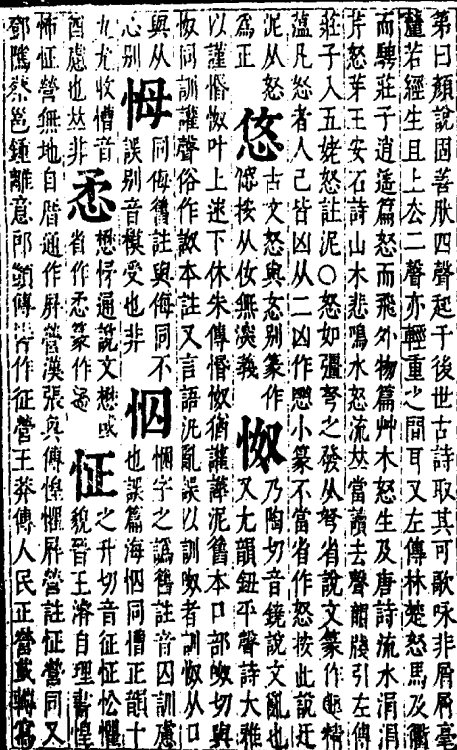 第曰顏說固善肰四聲起于後世古詩取其可歌咏非屑屑毫
釐若經生且上厺二聲亦輕重之間耳又左傳林楚怒馬及衢
而騁莊子逍遙篇怒而飛外物篇艸木怒生及唐詩流水涓涓
芹怒芽王安石詩山木悲鳴水怒流𠀤當讀去聲韻牋引左傳
莊子入五姥怒註泥○怒如彊弩之發从弩省說文篆作精
薀凡怒者人己皆凶从二凶作小篆不當省作怒按此說迂
泥从怒
爲正
古文怒與恣別篆作
按从伮無深義
怓
乃陶切音鐃說文亂也
又尤韻鈕平聲詩大雅
以謹惛怓叶上逑下休朱傳惛怓猶讙譁泥舊本口部呶切與
怓同訓讙聲俗作詉本註又言語汎亂誤以訓呶者訓怓从口
與从
心別
同侮舊註與侮同不
誤別音模受也非
怬
㤜字之譌舊註音囚訓慮
也誤篇海怬同慒正韻十
九尤收慒音
酉慮也𠀤非
通說文懋或
省作篆作
怔
之升切音征怔忪懼
貌晉王濬自理書惶
怖怔營無地自厝通作屏營漢張奐傳惶懼屏營註怔營同又
鄧隲蔡邕鍾離意郎顗傳皆作征營王莽傳人民正營轉寫